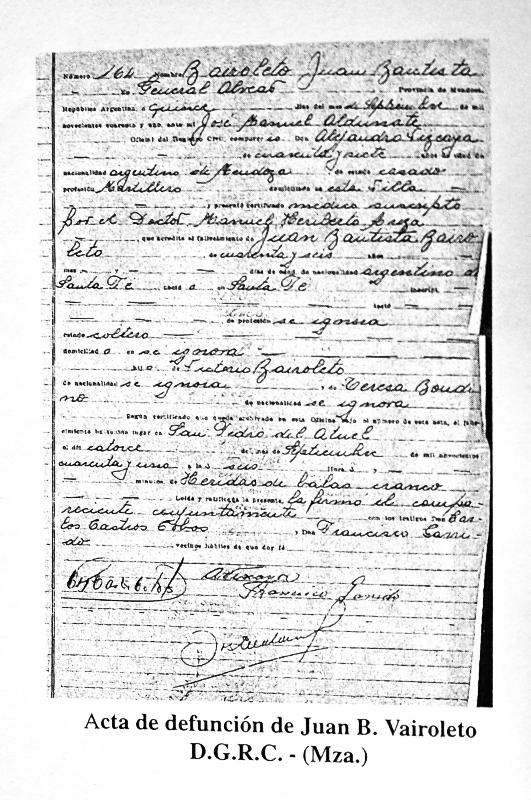 Número 164 Nombre Bairoleto Juan Bautista
En General Alvear Provincia de Mendoza
República Argentina, a quince días del mes de Septiembre de mil
novecientos cuarenta y uno, ante mí José Manuel Aldunate
Oficial del Registro Civil, compareció Don Alejandro
de cuarenta y siete años de edad de
nacionalidad argentino de Mendoza de estado casado
profesión Martillero domiciliado en esta Villa
y presentó certificado médico suscripto
por el Doctor Manuel Heriberto
que acredita el fallecimiento de Juan Bautista Bairo
leto de cuarenta y seis años
mes días de edad, de nacionalidad argentino de
Santa Fe nació a en Santa Fe inscript.
de profesión se ignora
estado soltero
domiciliado en se ignora
hijo de Victorio Bairoleto
de nacionalidad se ignora y de Teresa Bondi
no de nacionalidad se ignora
Según certificado que queda archivado en esta Oficina bajo el número de esta acta, el falle-
cimiento ha tenido lugar en San Pedro del Atuel
el día catorce de mes de Septiembre de mil novecientos
cuarenta y uno a las seis horas y
minutos de Heridas de balas craneo
Leída y ratificada la presente, la firmó el compa-
reciente conjuntamente con los testigos Don Car-
los Castros Cobos, y Don Francisco Garri-
do vecinos hábiles de que doy fé
Francisco Garrido
Acta de defunción de Juan B. Vairoleto
D.G.R.C. - (Mza.)